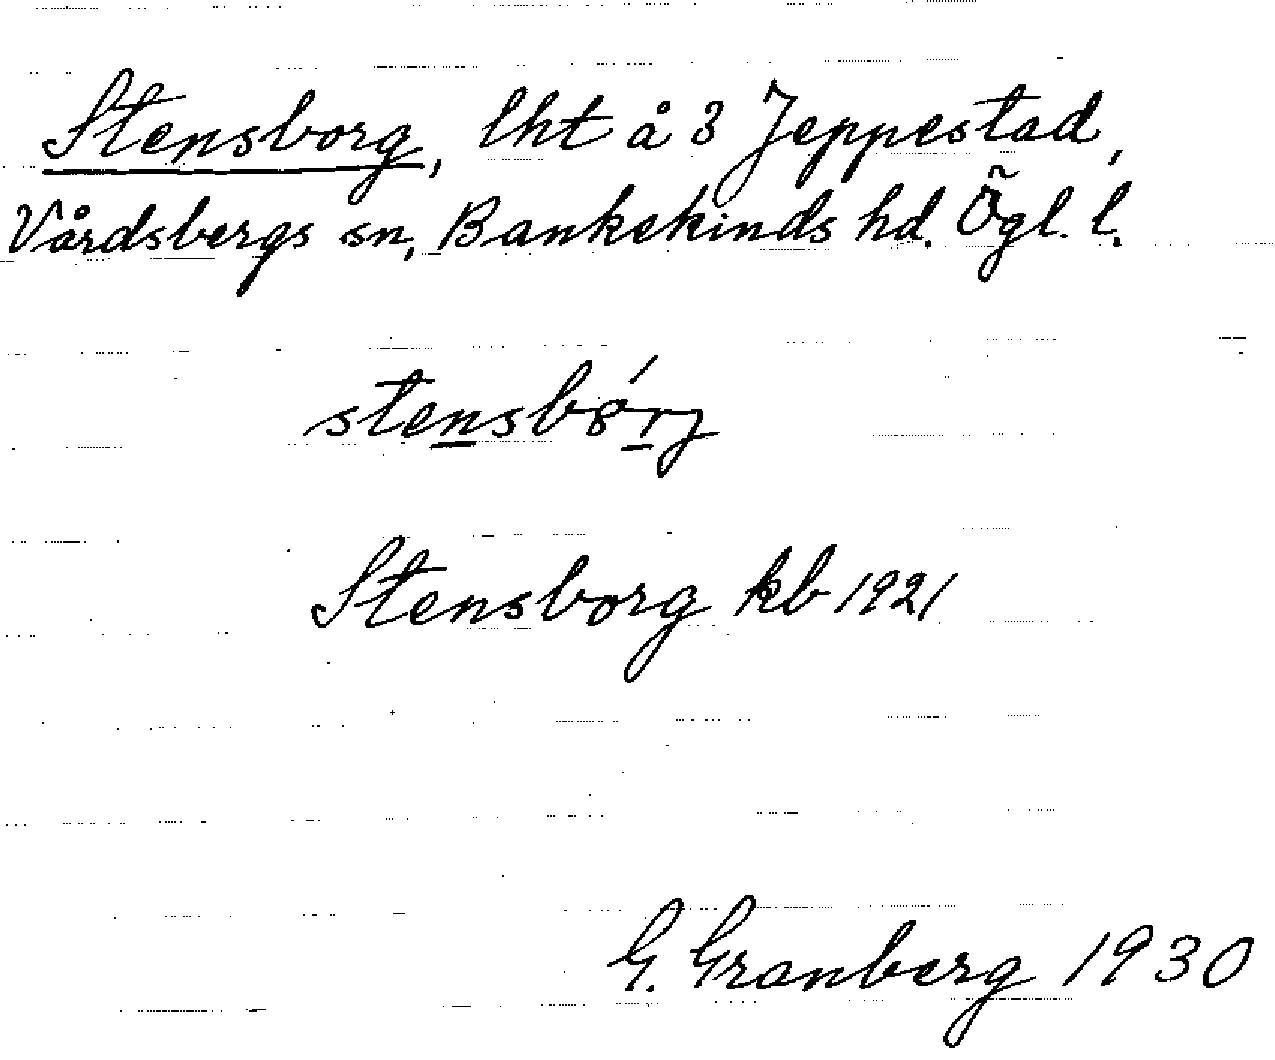 Stensborg, lht å 3 Jeppestad,
Vårdsbergs sn, Bankekinds hd. Ögl. l.
stensbórj
Stensborg kb 1921
G. Granberg 1930